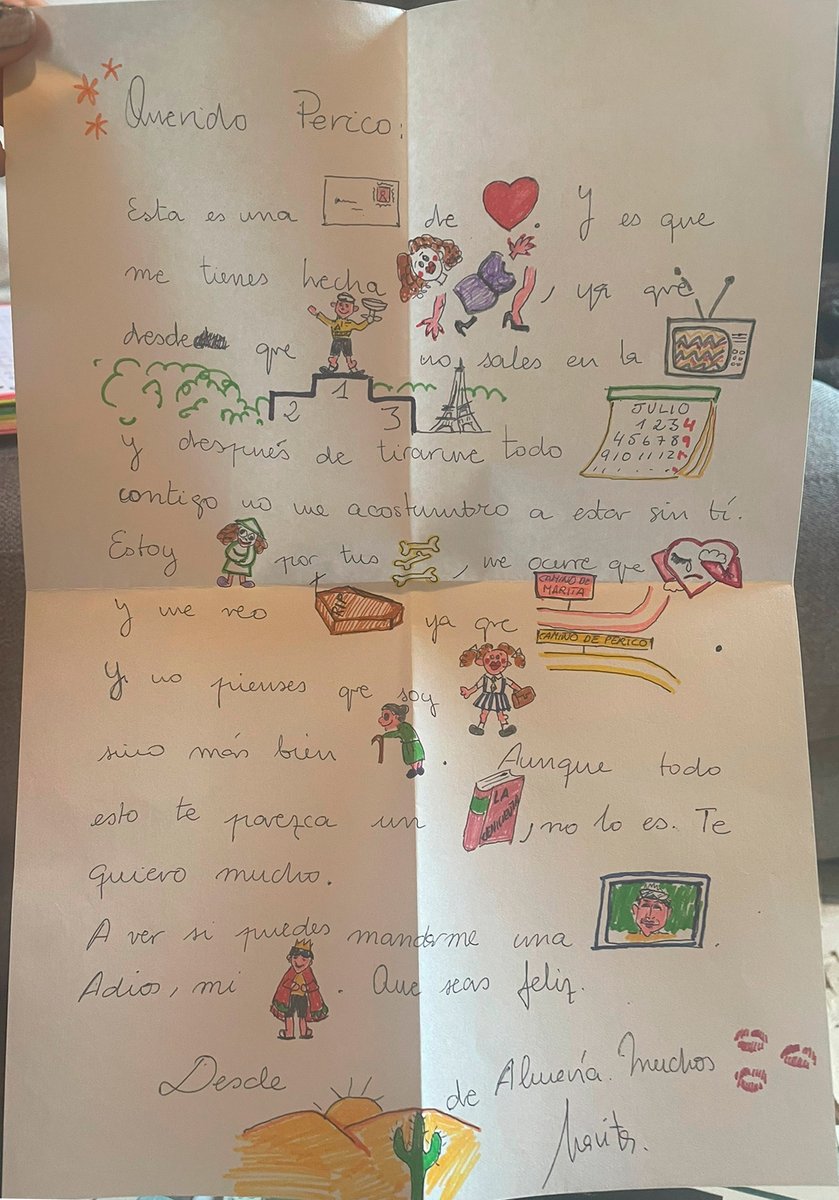 Querido Perico:
Esta es una de . Y es que
me tienes hecha , ya que
desde que no sales en la
1
2
3
JULIO
1 2 3 4
4 5 6 7 8 9
9 10 11 12
y después de tirarme todo
contigo no me acostumbro a estar sin tí.
Estoy por tus , me ocurre que
RIP
CAMINO DE
MARITA
y me veo ya que
CAMINO DE PERICO
Y no pienses que soy
sino más bien . Aunque todo
LA
CENICIENTA
esto te parezca un , no lo es. Te
quiero mucho.
A ver si puedes mandarme una .
Adios, mi . Que seas feliz.
Desde de Almería. Muchos
Marita.